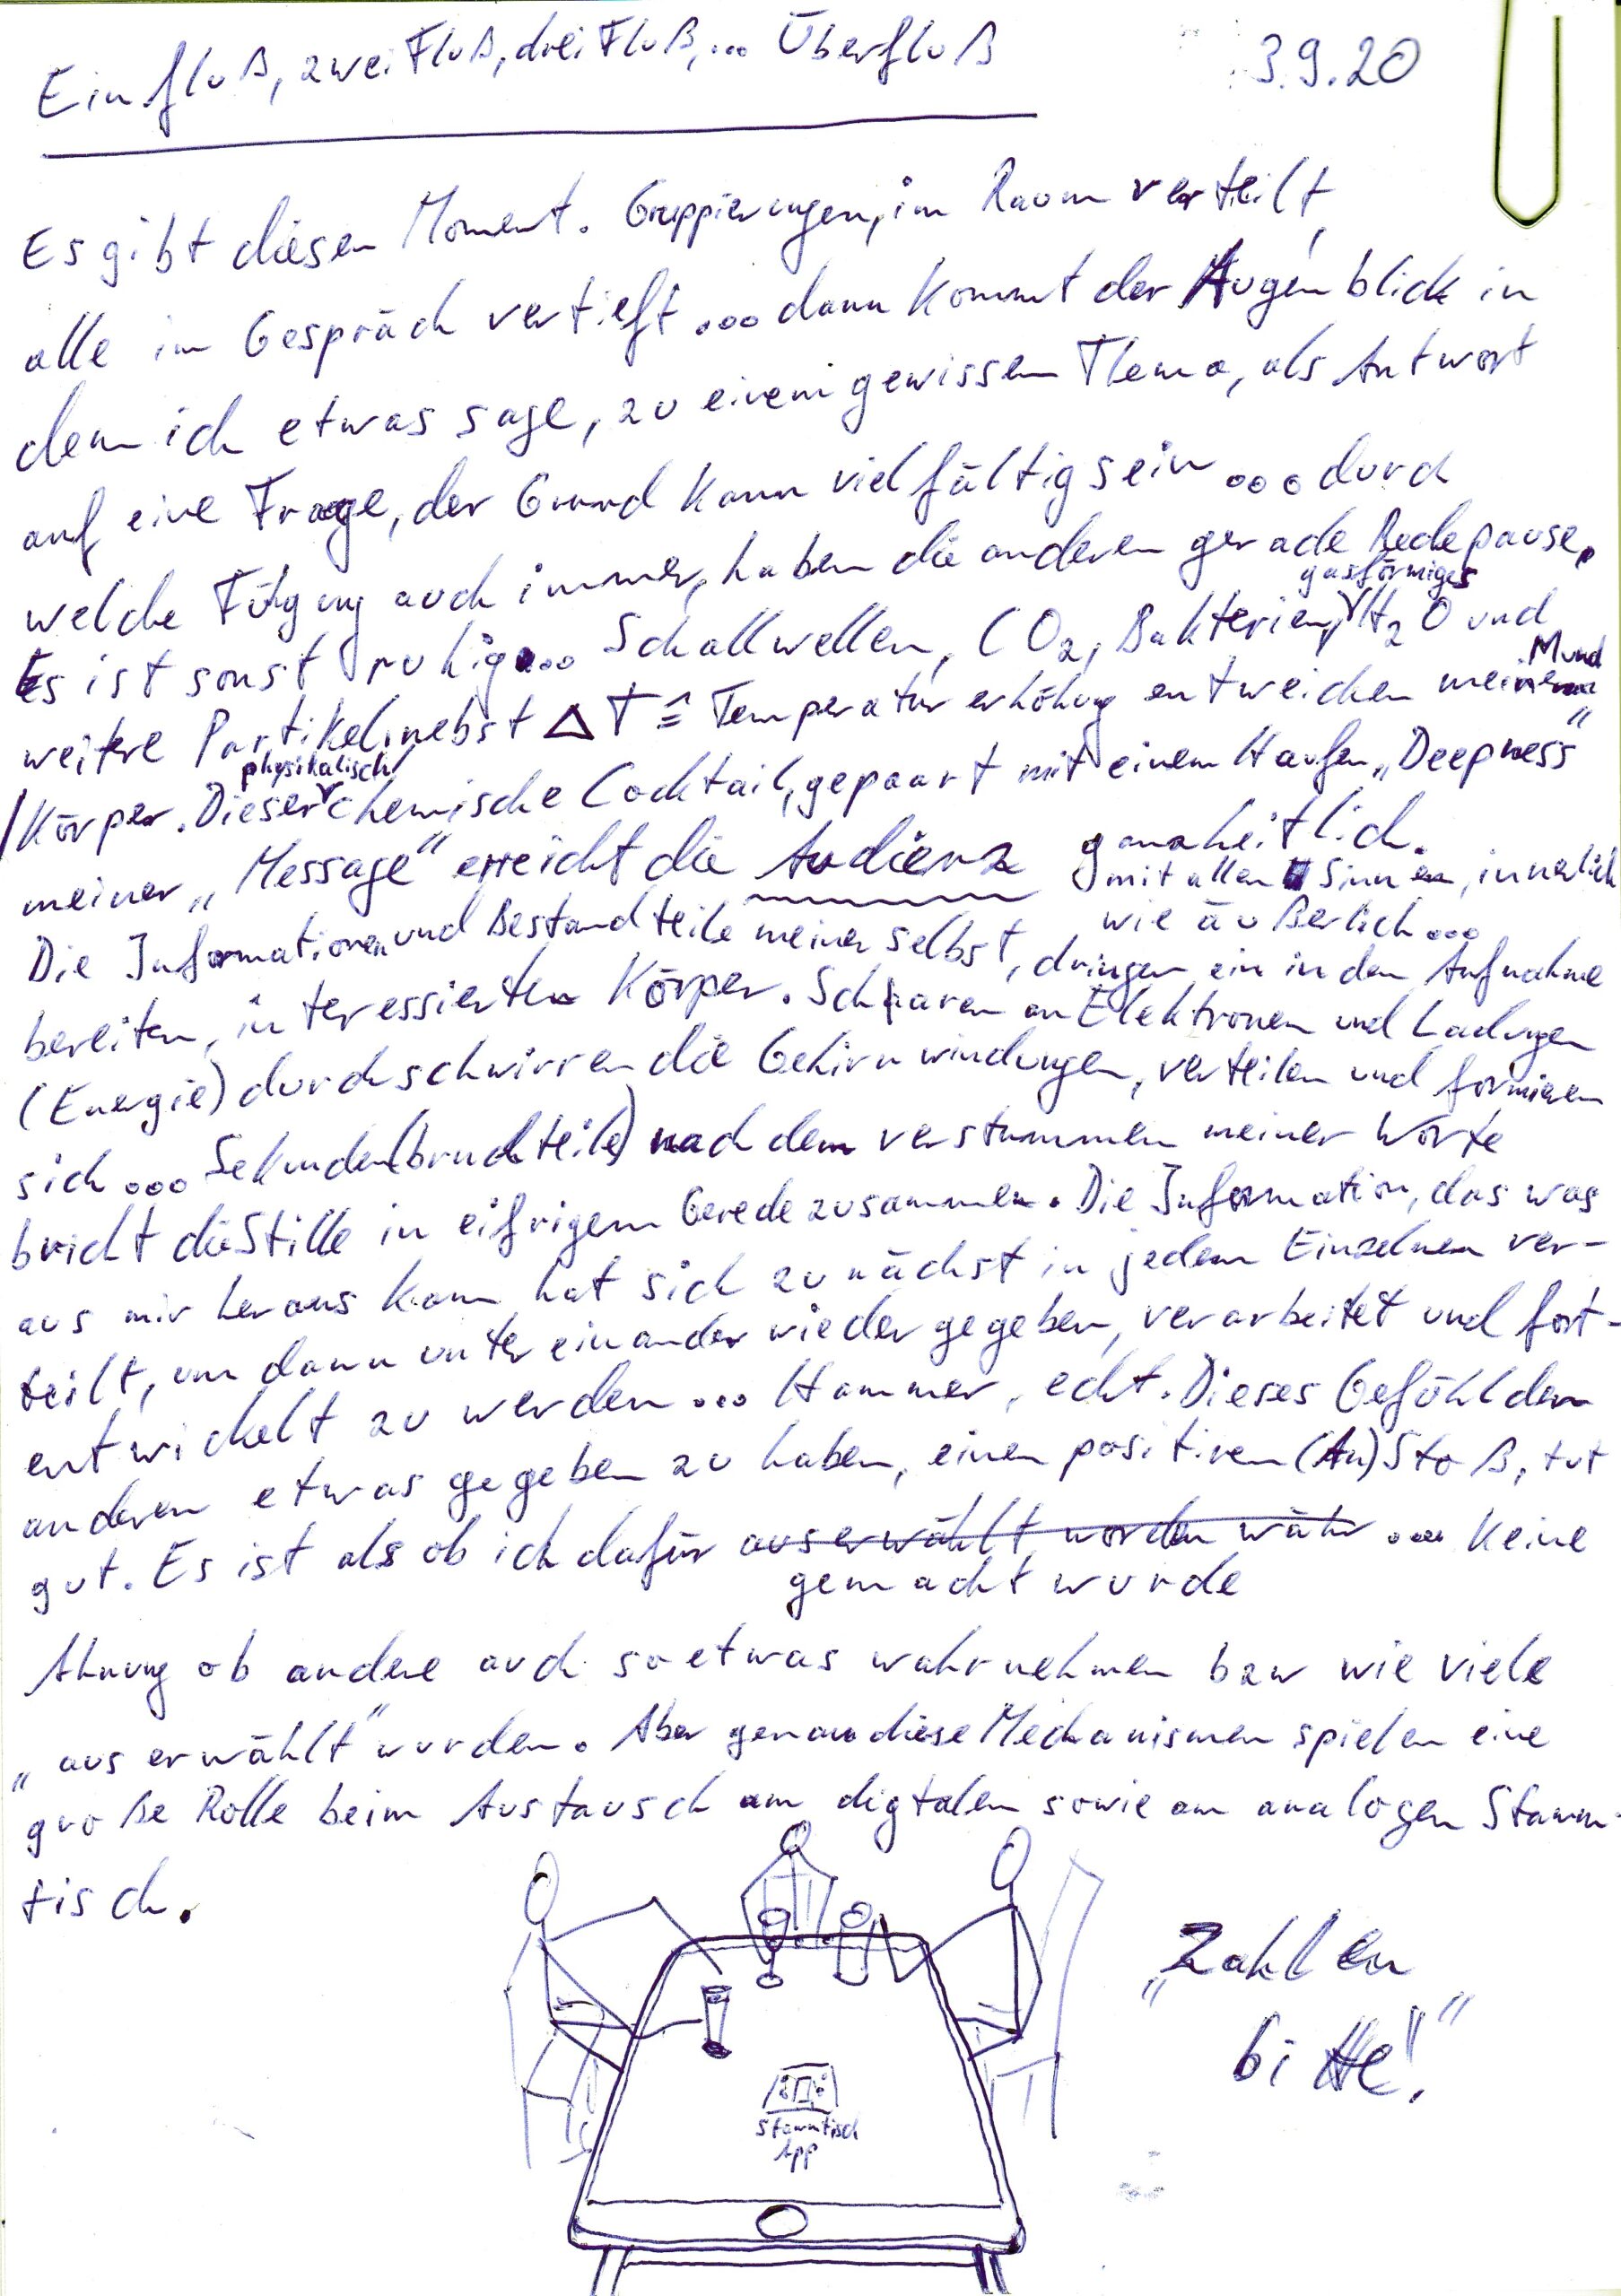 Einfluß, zwei Fluß, drei Fluß,... Überfluß
3.9.20
Es gibt diesen Moment. Gruppierungen, im Raum verteilt,
alle im Gespräch vertieft ... dann kommt der Augenblick in
dem ich etwas sage, zu einem gewissen Thema, als Antwort
auf eine Frage, der Grund kann vielfältig sein ... durch
welche Fügung auch immer, haben die anderen gerade Redepause.
Es ist sonst ruhig... Schallwellen, CO₂, Bakterien, gasförmiges H₂O und
weitere Partikel, nebst ΔT ≙ Temperaturerhöhung entweichen meinem Mund
/Körper. Dieser physikalisch/chemische Cocktail, gepaart mit einem Haufen „Deepness"
meiner „Message" erreicht die Audienz ganzheitlich.
mit allen Sinnen, innerlich
wie äußerlich...
Die Informationen und Bestandteile meiner selbst, dringen ein in den Aufnahme
bereiten, interessierten Körper. Scharen an Elektronen und Ladungen
(Energie) durchschwirren die Gehirnwindungen, verteilen und formieren
sich ... Sekunden(bruchteile) nach dem verstummen meiner Worte
bricht die Stille in eifrigem Gerede zusammen. Die Information, das was
aus mir heraus kam hat sich zunächst in jedem Einzelnen ver-
teilt, um dann untereinander wiedergegeben, verarbeitet und fort-
entwickelt zu werden ... Hammer, echt. Dieses Gefühl den
anderen etwas gegeben zu haben, einen positiven (An)Stoß, tut
gut. Es ist als ob ich dafür auserwählt worden währ ... Keine
gemacht wurde
Ahnung ob andere auch so etwas wahrnehmen bzw wie viele
„auserwählt" wurden. Aber genau diese Mechanismen spielen eine
große Rolle beim Austausch am digtalen sowie am analogen Stamm-
tisch.
„Zahlen
bitte!"
Stammtisch
App